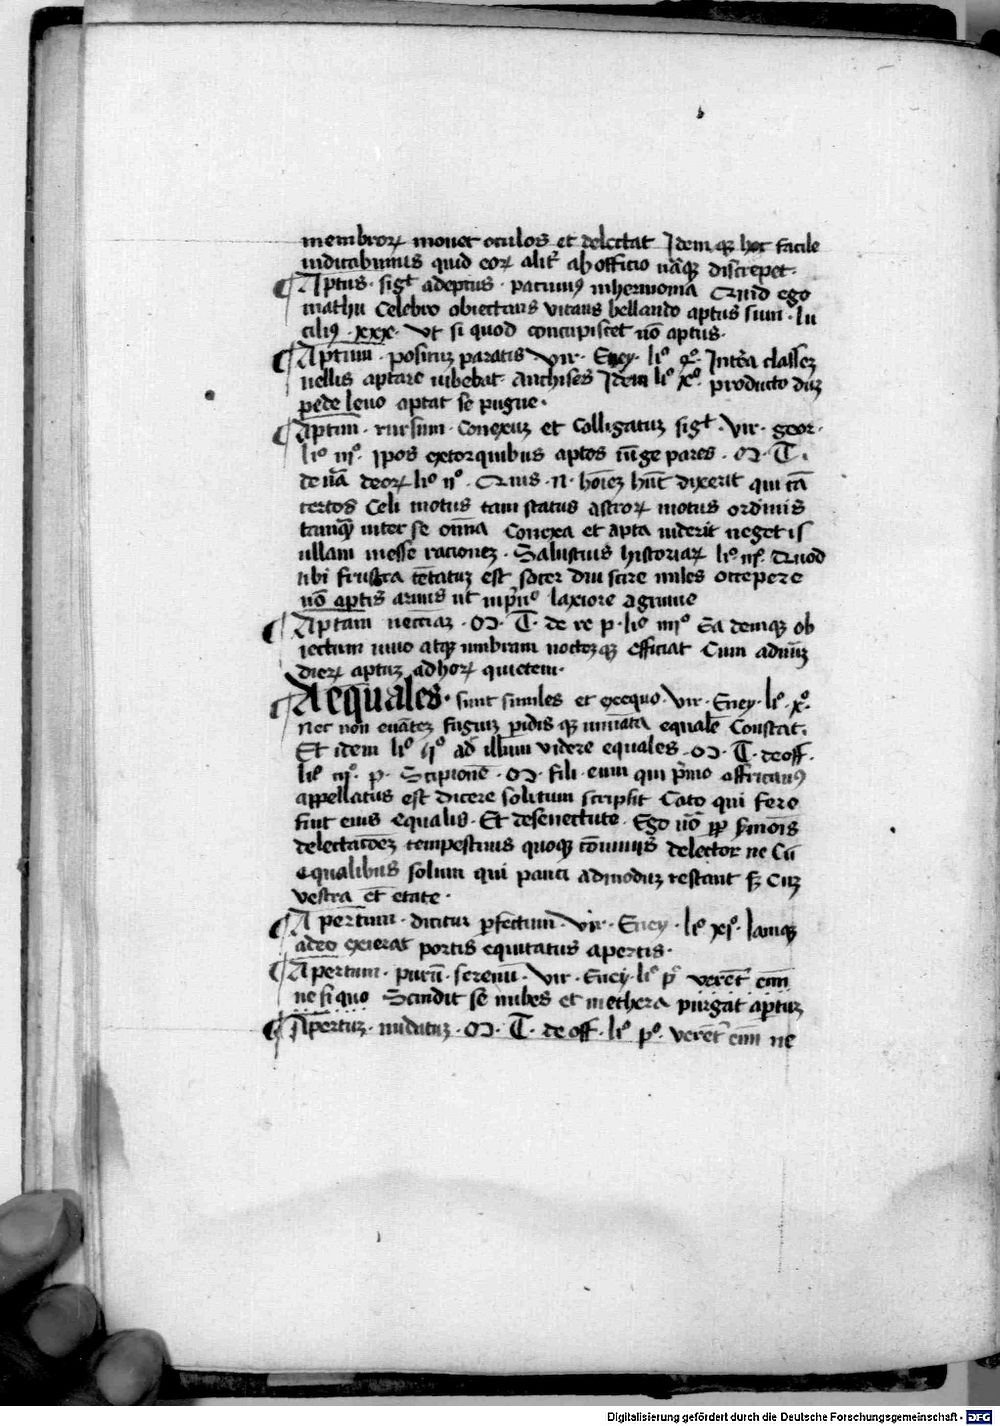 membroꝝ mouet oculos et delectat Idem qꝫ hoc facile
iudicabimus quid eoꝝ alit᷑ ab officio nãqꝫ discrepet ·
Aptus · sigͭ adeptus · pacuuiꝯ in hermiona Quid ego
celebro obiectans vitans bellando aptus sum · lu
ciliꝯ · xxx · Vt si quod concupiscet nõ aptus ·
Aptum · positum paratis Vir · Eney · liº qº · Interea classeꝫ
uellis aptare iubebat · Anchises Idem liº xº · producto duꝫ
pede leuo aptat se pugne ·
Aptum · rursum · Conexuꝫ et Colligatuꝫ sigͭ · Vir · geor ·
liº iijº · ipos extorquibus aptos iũge pares · M · T ·
de nã deoꝝ liº ijº · Quis · n · hoĩeꝫ hũc dixerit qui tã
certos Celi motus tam status astroꝝ motus ordinis
tamqꝫ inter se oĩa Conexa et apta uiderit neget is
ullam inesse racioneꝫ · Salustius historiaꝝ liº iijº · Quod
ubi frustra tẽtatuꝫ est socer diu scire miles occepere
nõ aptis armis ut in laxiore agmine
Aptam · M · T · de re p · liº iiijº Ea demqꝫ ob
iectum atqꝫ umbram noctesqꝫ efficiat Cum ad
dieꝝ aptuꝫ ad hoꝝ quietem ·
Aequales · sunt similes et ex equo · Vir · Eney · liº · xº ·
Nec non euãteꝫ fugiuꝫ equalẽ Constat ·
Et idem liº ijº ad illum videre equales · M · T · de off ·
liº iijº · p · Scipionẽ · M · fili · eum qui p̃mo affricanꝯ
appellatus est dicere solitum scripsit Cato qui fere
fuit eius equalis · Et de senectute · Ego uõ ꝓp s̃monis
delectacõeꝫ tempestiuis quoqꝫ cõuiuijs delector ne Cũ
equalibus solum qui pauci admoduꝫ restant sꝫ Cuꝫ
vestra et etate ·
Apertum · dicitur ꝑfectum · Vir · Eney · liº xjº · Iamqꝫ
adeo exierat portis equitatus apertis ·
Apertum · purũ · serenũ · Vir · Eney · liº pº veret᷑ eĩm
ne si quo Scindit se nubes et in ethera purgat aptuꝫ
Apertuꝫ · nudatuꝫ · M · T · de off · liº pº · veret᷑ eĩm ne
Digitalisierung gefördert durch die Deutsche Forschungsgemeinschaft - DFG